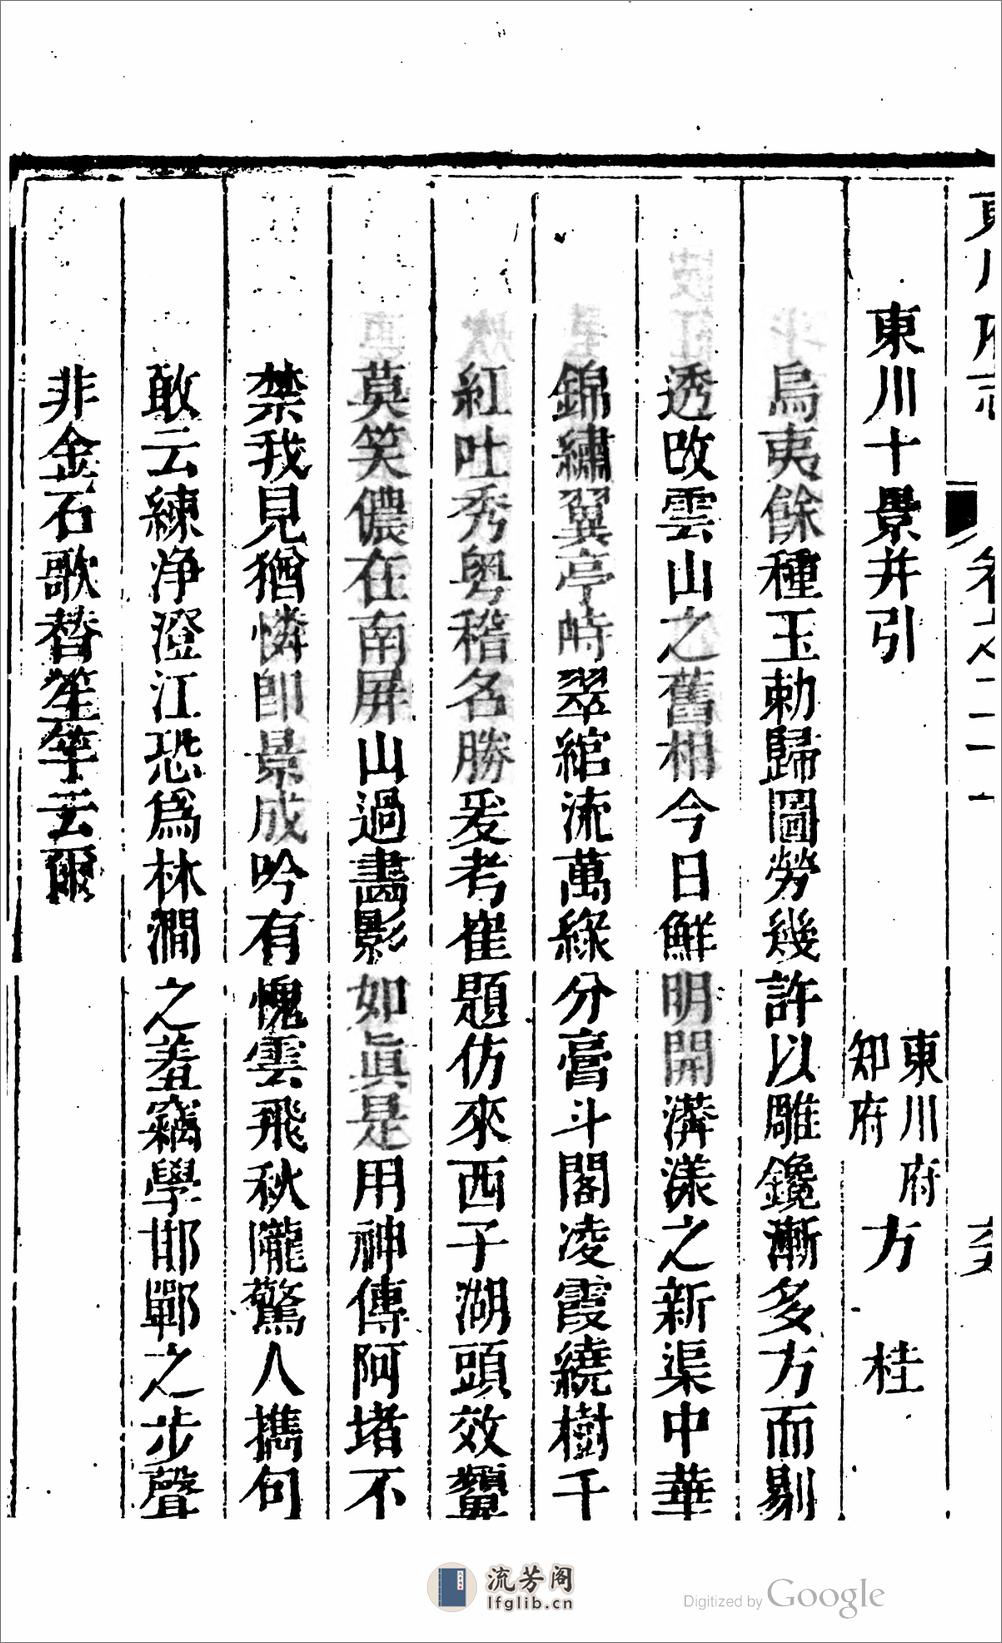 東川府志 卷之二十一
東川十景并引 東川府知府 方桂
烏夷餘種玉勅歸圖勞幾許以雕鑱漸多方而剔
透改雲山之舊相今日鮮明開漭漾之新渠中華
錦繡翼亭峙翠綰流萬綠分膏斗閣凌霞繞樹千
紅吐秀粤稽名勝爰考崔題仿來西子湖頭效顰
莫笑儂在南屏山過畵影如眞是用神傳阿堵不
禁我見猶憐卽景成吟有愧雲飛秋隴驚人擕句
敢云練净澄江恐爲林澗之羞竊學邯鄲之步聲
非金石歌替笙竽云爾
流芳阁
lfglib.cn
Digitized by Google